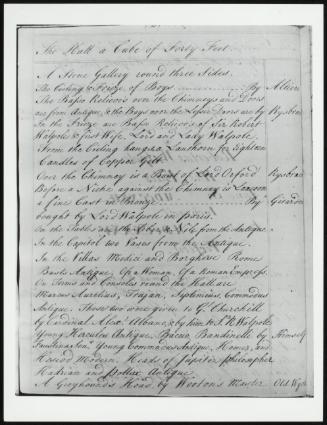 The Hall a Cube of Forty Feet
A Stone Gallery round three Sides.
The Ceiling & Frieze of Boys By Altieri
The Basso Relievos over the Chimneys and Doors
are from Antiques, & the Boys over the Lesser Doors are by Rysbrac
In the Frieze are Basso Relievos of Sir Robert
Walpole & first Wife, Lord and Lady Walpole
From the Ceiling hangs a Lanthorn for Eighteen
Candles of Copper Gilt
Over the Chimney is a Bust of Lord Orford Rysbrac
Before a Niche against the Chimney is Laocoon
a fine Cast in Bronze By Girardon
bought by Lord Walpole in Paris.
On the Tables are the Tyber & Nile from the Antique
In the Capitol two Vases from the Antique.
In the Villas Medici and Borghese Rome
Busts Antique, Of a Woman, Of a Roman Empress
On Terms and Consoles round the Hall are
Marcus Aurelius, Trajan, Septimius, Commodus
Antique. These two were given to G. Churchill
by Cardinal Alexr. Albani, & by him to Sr. R. Walpole
Young Hercules Antique, Baccio Bandinelli by Himself
Faustina Senr. Young Commodus Antique, Homer, and
Hesiod Modern. Heads of Jupiter, philosopher
Hadrian and Pollux Antique.
A Greyhounds Head, by Wootons Master Old Wyck